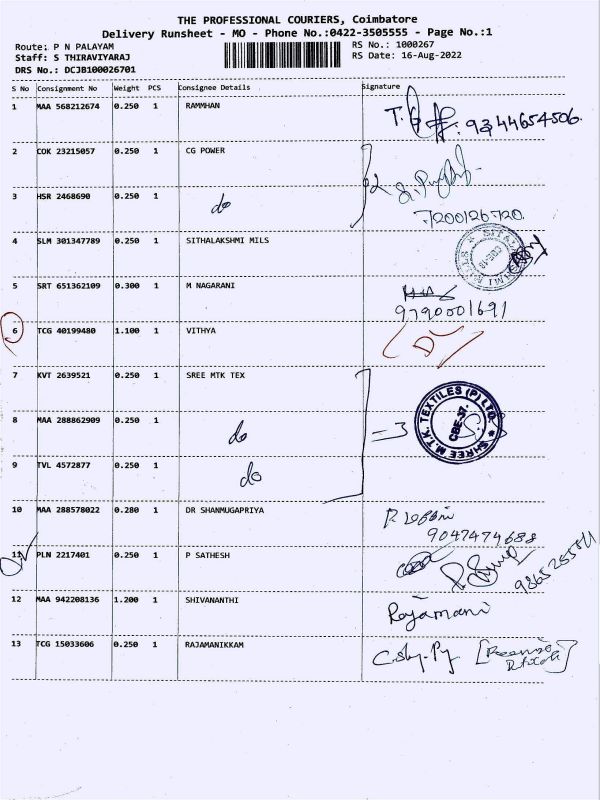 THE PROFESSIONAL COURIERS, Coimbatore
Delivery Runsheet - MO - Phone No.:0422-3505555 - Page No.:1
Route: P N PALAYAM RS No.: 1000267
Staff: S THIRAVIYARAJ RS Date: 16-Aug-2022
DRS No.: DCJB100026701
S No Consignment No Weight PCS Consignee Details Signature
1 MAA 568212674 0.250 1 RAMMHAN 9344654506
2 COK 23215057 0.250 1 CG POWER
3 HSR 2468690 0.250 1 do 7200126720
4 SLM 301347789 0.250 1 SITHALAKSHMI MILS
5 SRT 651362109 0.300 1 M NAGARANI
9790001691
6 TCG 40199480 1.100 1 VITHYA
7 KVT 2639521 0.250 1 SREE MTK TEX
8 MAA 288862909 0.250 1 do = 3 SHREE M.T.K. TEXTILES (P) LTD CBE-37.
9 TVL 4572877 0.250 1 do
10 MAA 288578022 0.280 1 DR SHANMUGAPRIYA
9047474688
11 PLN 2217401 0.250 1 P SATHESH
12 MAA 942208136 1.200 1 SHIVANANTHI Rajamani
13 TCG 15033606 0.250 1 RAJAMANIKKAM